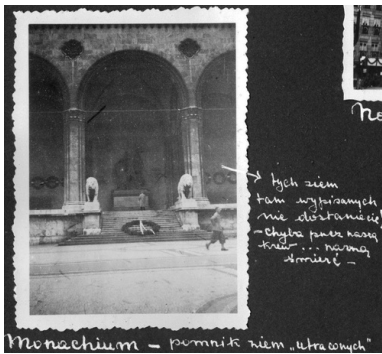 No
→ tych ziem
tam wypisanych
nie dostaniecie!
- chyba przez naszą
krew ... naszą
śmierć -
Monachium - pomnik ziem „utraconych"